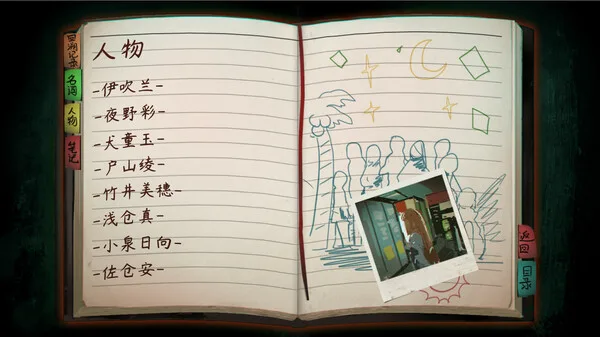 名词
人物
笔记
人物
-伊吹兰-
-夜野彩-
-犬童玉-
-户山绫-
-竹井美穗-
-浅仓真-
-小泉日向-
-佐仓安-
返回
目录